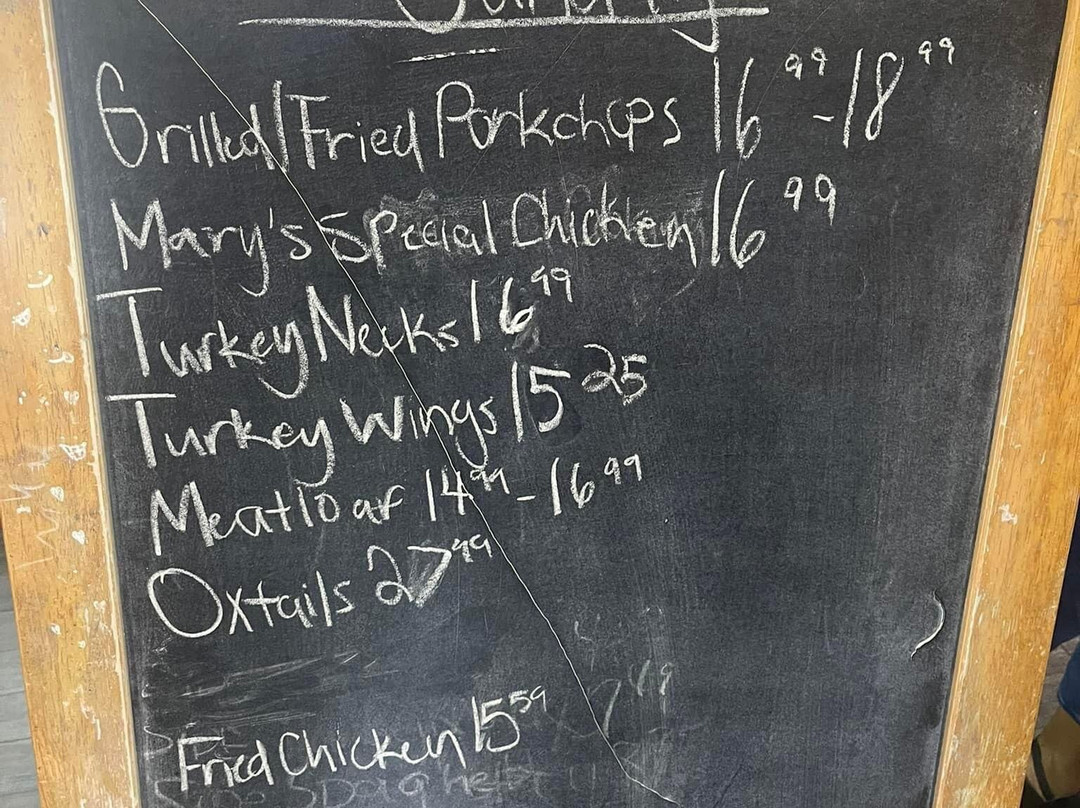 Grilled/Fried Porkchops 16 99 - 18 99
Mary's Special Chicken 16 99
Turkey Necks 16 99
Turkey Wings 15 25
Meatloaf 14 99 - 16 99
Oxtails 27 99
Fried Chicken 15 59